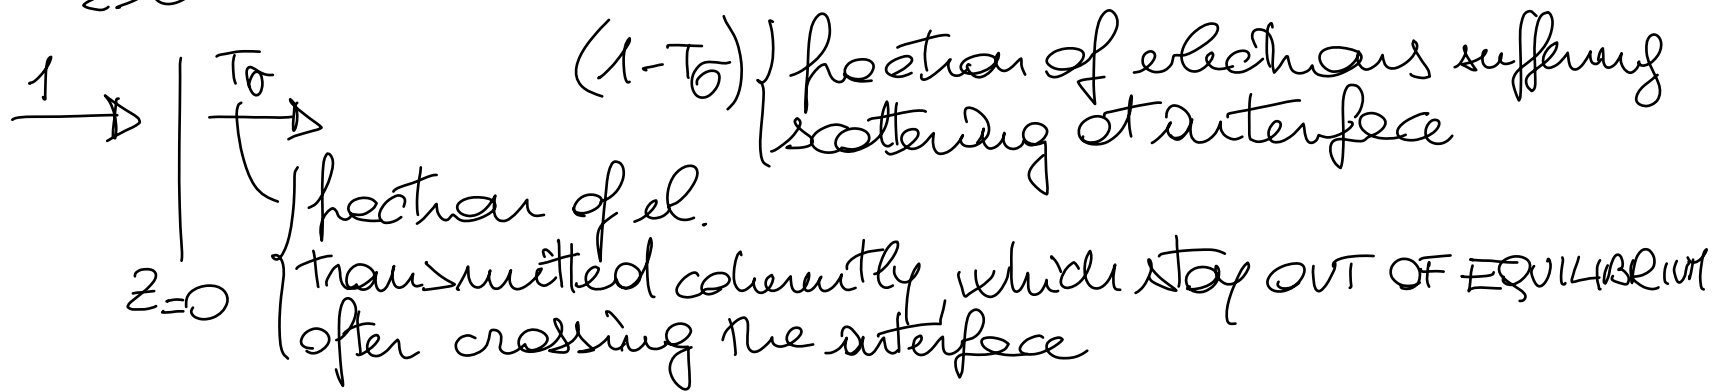 1 | Tσ (1-Tσ) { fraction of electrons suffering
scattering at interface
{ fraction of el.
transmitted coherently, which stay OUT OF EQUILIBRIUM
after crossing the interface
z=0